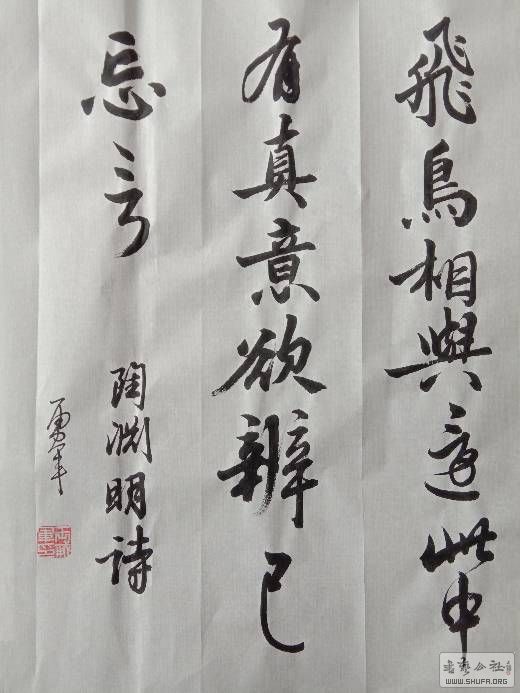 飛鳥相與還此中
有真意欲辨已
忘言
陶淵明詩
書藝公社
WWW.SHUFA.ORG